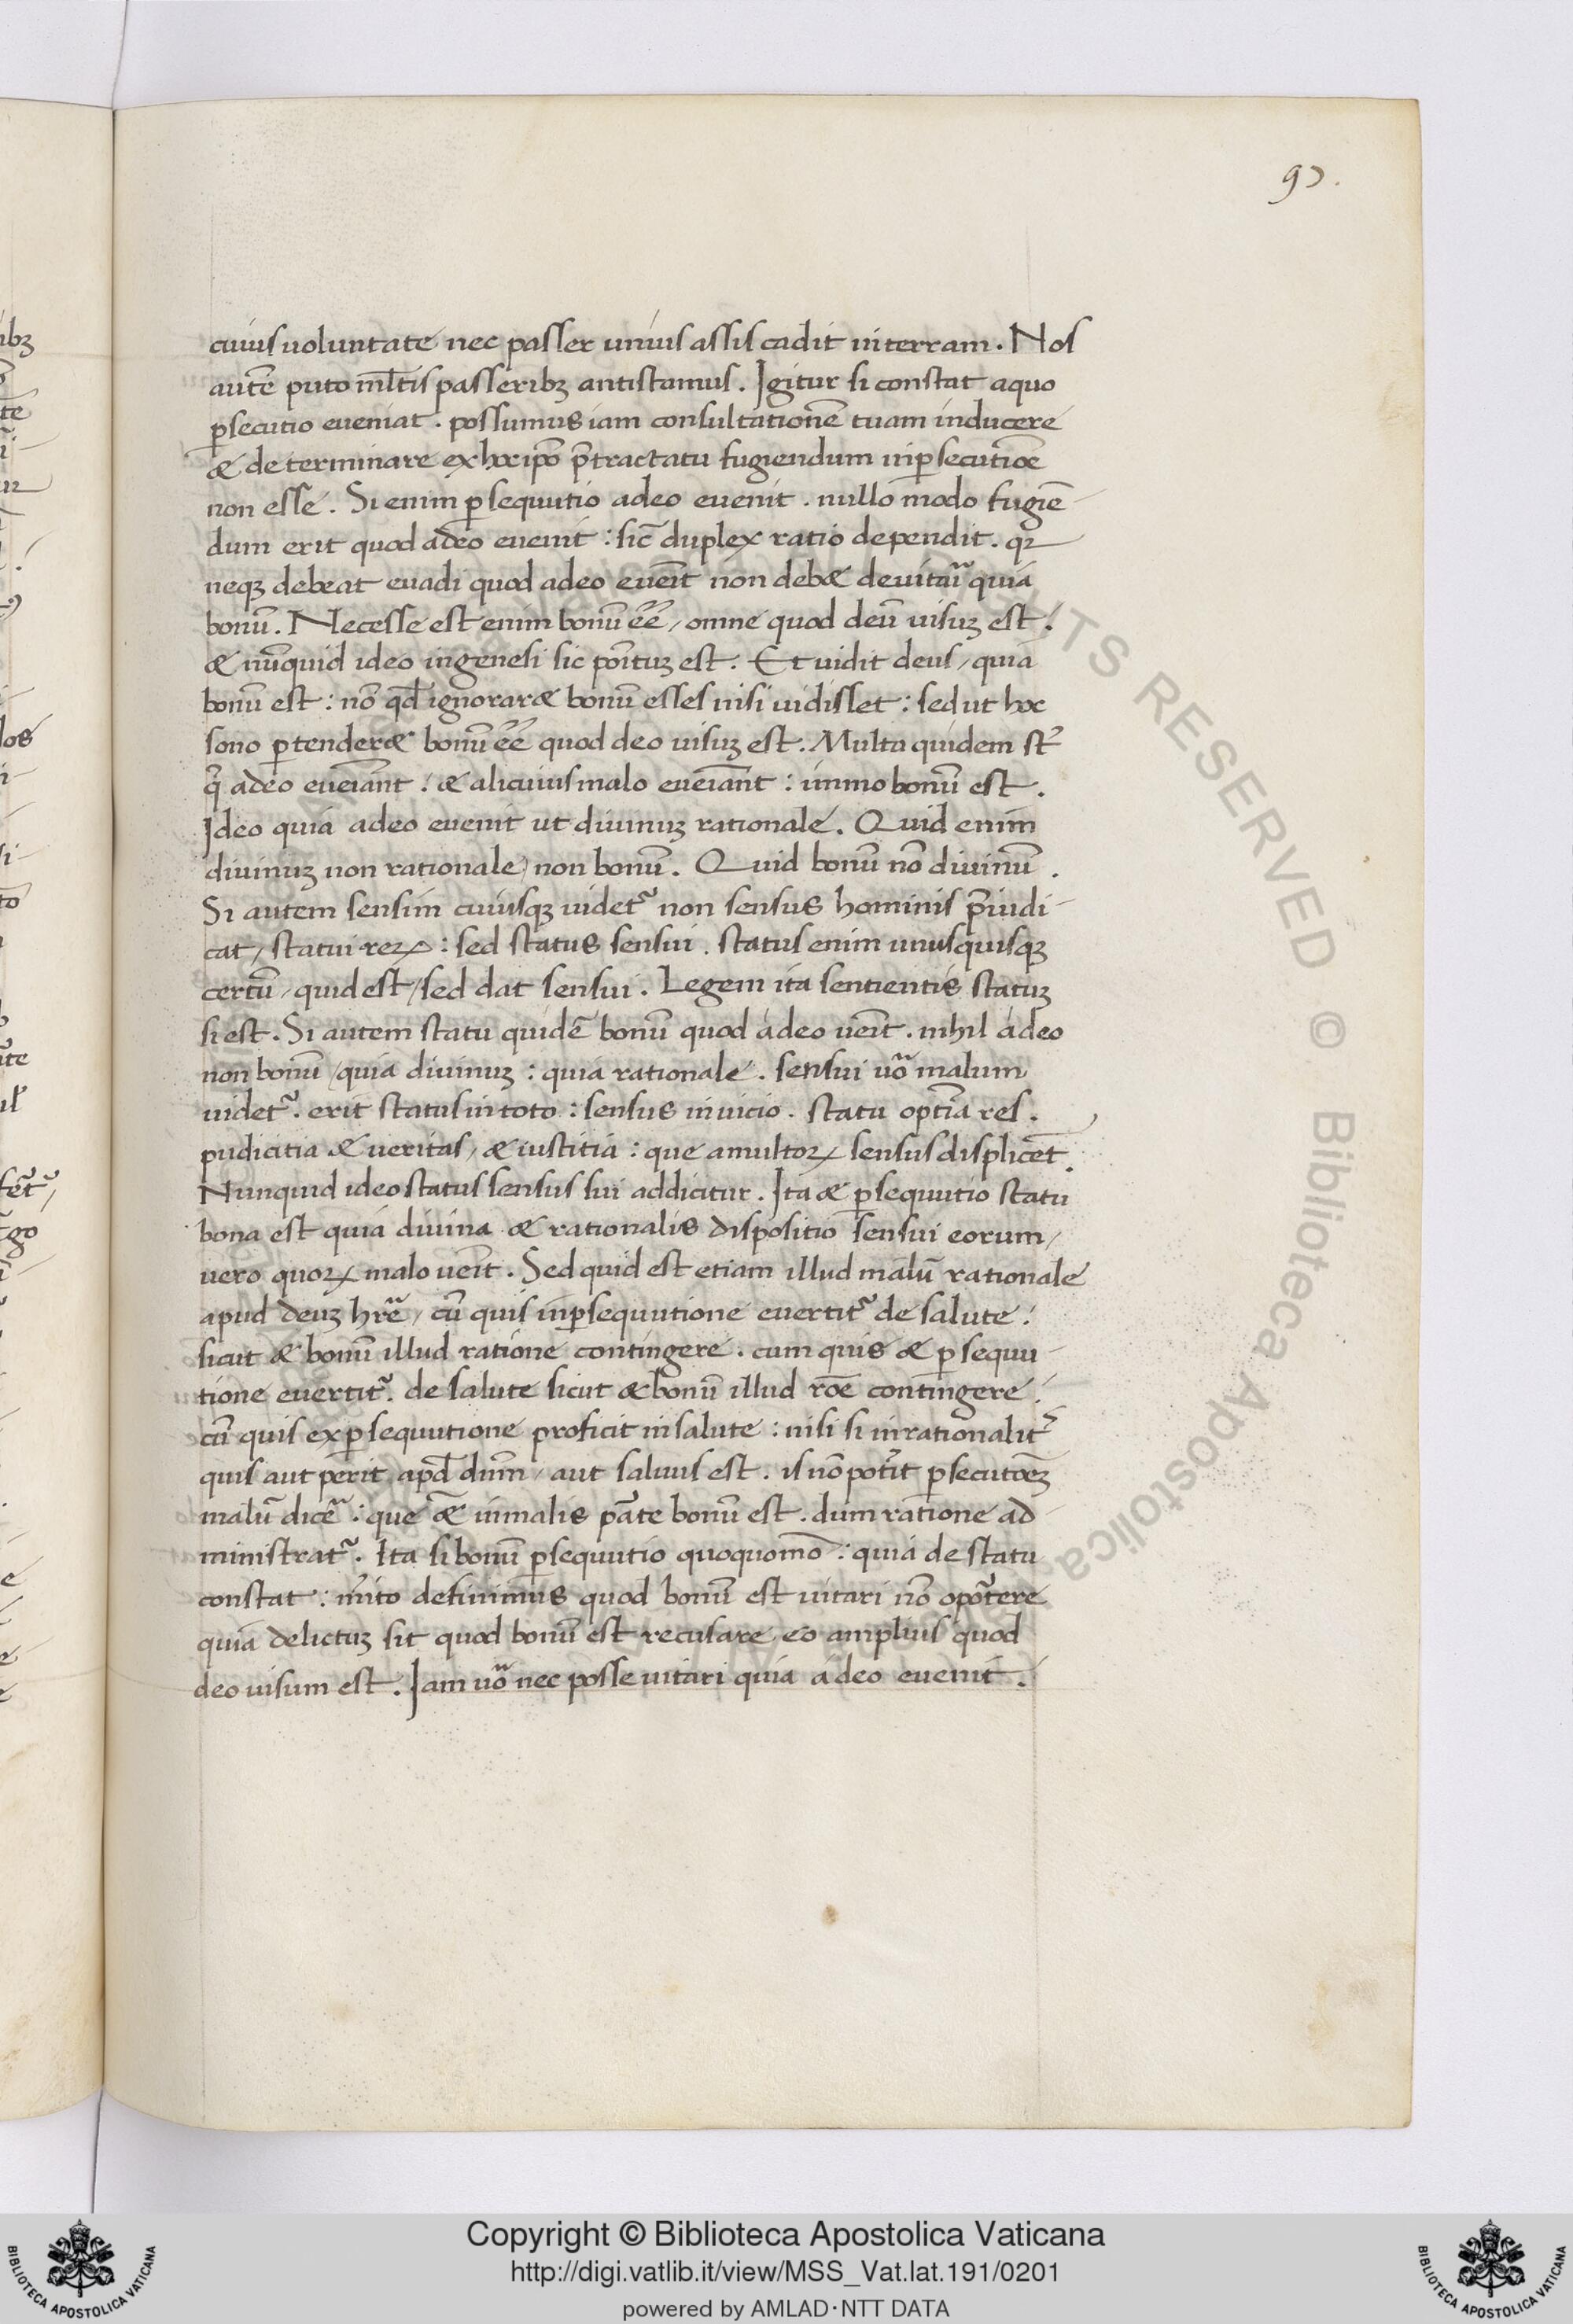 97.
cuius uoluntate nec passer unius assis cadit in terram. Nos
autē puto ml̄tis passeribꝫ antistamus. Igitur si constat a quo
ꝑsecutio eueniat. possumus iam consultationē tuam inducere
& determinare ex hoc ip̄o p̄tractatu fugiendum in ꝑsecutiōe
non esse. Si enim ꝑsequutio a deo euenit. nullo modo fugiē-
dum erit quod a deo euenit: sic̄ duplex ratio dependit. qꝛ
neqꝫ debeat euadi quod a deo eueīt non deb& deuitaū quia
bonū. Necesse est enim bonū ēē, omne quod deū uisuꝫ est.
& nūquid ideo in genesi sic poītuꝫ est. Et uidit deus, quia
bonū est: nō qd̄ ignorar& bonū esses nisi uidisset: sed ut hoc
sono ꝑtender& bonū ēē quod deo uisuꝫ est. Multa quidem st̄
q̄ a deo eueiānt. & alicuius malo eueiānt: immo bonū est.
Ideo quia a deo euenit ut diuinuꝫ rationale. Quid enim
diuinuꝫ non rationale, non bonū. Quid bonū nō diuinū.
Si autem sensim cuiusqꝫ uidet᷑ non sensus hominis p̄iudi-
cat, statui reꝝ: sed status sensui. status enim unusquisqꝫ
certū, quid est, sed dat sensui. Legem ita sentientis statuꝫ
si est. Si autem statu quidē bonū quod a deo ueīt. nihil a deo
non bonū, quia diuinuꝫ: quia rationale. sensui uō malum
uidet᷑. erit status in toto: sensus in uicio. statu optīa res.
pudicitia & ueritas, & iustitia: que a multoꝝ sensus displicēt.
Nunquid ideo status sensus sui addicitur. Ita & ꝑsequutio statu
bona est quia diuina & rationalis dispositio sensui eorum,
uero quoꝝ malo ueīt. Sed quid est etiam illud malū rationale
apud deuꝫ hr̄e, cū quis in ꝑsequutione euertit᷑ de salute.
sicut & bonū illud ratione contingere. cum quis & ꝑsequu-
tione euertit᷑. de salute sicut & bonū illud rōe contingere.
cū quis ex ꝑsequutione proficit in salute: nisi si inrationalit᷑
quis aut perit apd̄ dūm, aut saluus est. is nō pot̄it ꝑsecutōeꝫ
malū dicē: que &̄ in malis p̄ate bonū est. dum ratione ad
ministrat᷑. Ita si bonū ꝑsequutio quoquomō: quia de statu
constat: m̄ito definimus quod bonū est uitari nō opōtere
quia delictuꝫ sit quod bonū est recusare eo amplius quod
deo uisum est. Iam uō nec posse uitari quia a deo euenit.
ALL RIGHTS RESERVED © Biblioteca Apostolica Vaticana
Copyright © Biblioteca Apostolica Vaticana
http://digi.vatlib.it/view/MSS_Vat.lat.191/0201
powered by AMLAD·NTT DATA
BIBLIOTECA APOSTOLICA VATICANA
BIBLIOTECA APOSTOLICA VATICANA